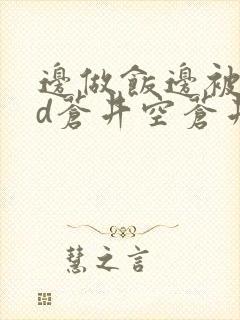 邊做飯邊被
d蒼井空蒼井
慧之言